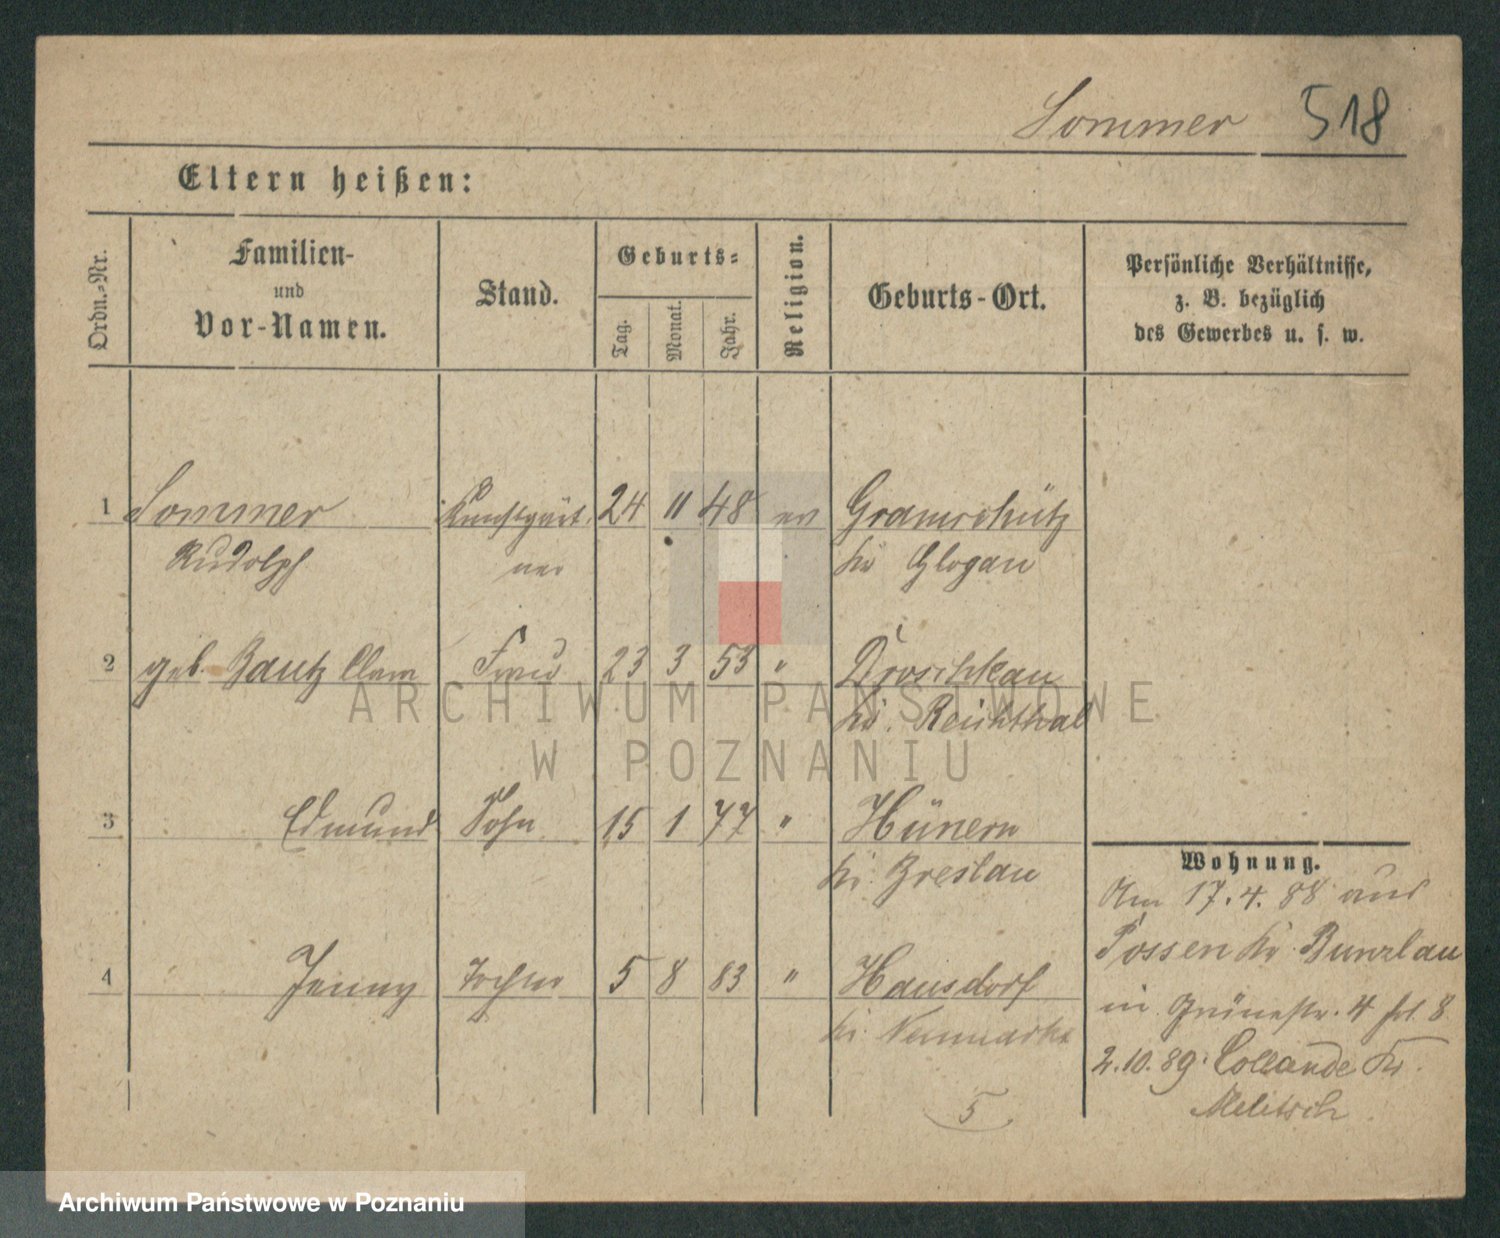 Sommer 518
Eltern heißen:
Ordn.-Nr.
Familien-
und
Vor-Namen.
Stand.
Geburts-
Tag.
Monat.
Jahr.
Religion.
Geburts-Ort.
Persönliche Verhältnisse,
z. B. bezüglich
des Gewerbes u. s. w.
1 Sommer Kunstgärt- 24 11 48 ev Gramschütz
Rudolph ner Kr Glogau
2 geb. Bautz Clara Frau 23 3 53 " Droschkau
Kr. Reichthal
3 Edmund Sohn 15 1 77 " Hünern
Kr. Breslau
4 Jenny Tochter 5 8 83 " Hausdorf
Kr. Neumarkt
5
Wohnung.
Am 17.4.88 aus
Possen Kr. Bunzlau
in Grünestr. 4 8
2.10.89. Collande Kr.
Melitsch
ARCHIWUM PAŃSTWOWE
W POZNANIU
Archiwum Państwowe w Poznaniu